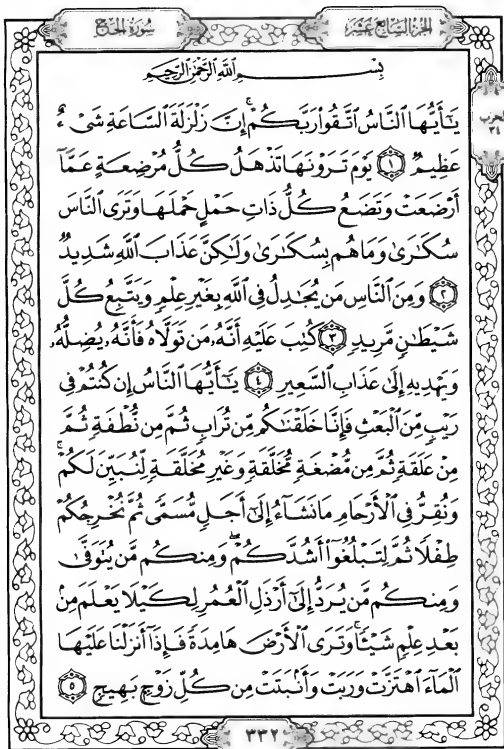 سُورَةُ الحَجِّ
الجُزْءُ السَّابِعَ عَشَرَ
بِسْمِ اللَّهِ الرَّحْمَٰنِ الرَّحِيمِ
الحزب ٣٤
يَٰٓأَيُّهَا ٱلنَّاسُ ٱتَّقُوا۟ رَبَّكُمْ ۚ إِنَّ زَلْزَلَةَ ٱلسَّاعَةِ شَىْءٌ
عَظِيمٌ ١ يَوْمَ تَرَوْنَهَا تَذْهَلُ كُلُّ مُرْضِعَةٍ عَمَّآ
أَرْضَعَتْ وَتَضَعُ كُلُّ ذَاتِ حَمْلٍ حَمْلَهَا وَتَرَى ٱلنَّاسَ
سُكَٰرَىٰ وَمَا هُم بِسُكَٰرَىٰ وَلَٰكِنَّ عَذَابَ ٱللَّهِ شَدِيدٌ
٢ وَمِنَ ٱلنَّاسِ مَن يُجَٰدِلُ فِى ٱللَّهِ بِغَيْرِ عِلْمٍ وَيَتَّبِعُ كُلَّ
شَيْطَٰنٍ مَّرِيدٍ ٣ كُتِبَ عَلَيْهِ أَنَّهُۥ مَن تَوَلَّاهُ فَأَنَّهُۥ يُضِلُّهُۥ
وَيَهْدِيهِ إِلَىٰ عَذَابِ ٱلسَّعِيرِ ٤ يَٰٓأَيُّهَا ٱلنَّاسُ إِن كُنتُمْ فِى
رَيْبٍ مِّنَ ٱلْبَعْثِ فَإِنَّا خَلَقْنَٰكُم مِّن تُرَابٍ ثُمَّ مِن نُّطْفَةٍ ثُمَّ
مِنْ عَلَقَةٍ ثُمَّ مِن مُّضْغَةٍ مُّخَلَّقَةٍ وَغَيْرِ مُخَلَّقَةٍ لِّنُبَيِّنَ لَكُمْ ۚ
وَنُقِرُّ فِى ٱلْأَرْحَامِ مَا نَشَآءُ إِلَىٰٓ أَجَلٍ مُّسَمًّى ثُمَّ نُخْرِجُكُمْ
طِفْلًا ثُمَّ لِتَبْلُغُوٓا۟ أَشُدَّكُمْ ۖ وَمِنكُم مَّن يُتَوَفَّىٰ
وَمِنكُم مَّن يُرَدُّ إِلَىٰٓ أَرْذَلِ ٱلْعُمُرِ لِكَيْلَا يَعْلَمَ مِنۢ
بَعْدِ عِلْمٍ شَيْـًٔا ۚ وَتَرَى ٱلْأَرْضَ هَامِدَةً فَإِذَآ أَنزَلْنَا عَلَيْهَا
ٱلْمَآءَ ٱهْتَزَّتْ وَرَبَتْ وَأَنۢبَتَتْ مِن كُلِّ زَوْجٍۭ بَهِيجٍ ٥
٣٣٢